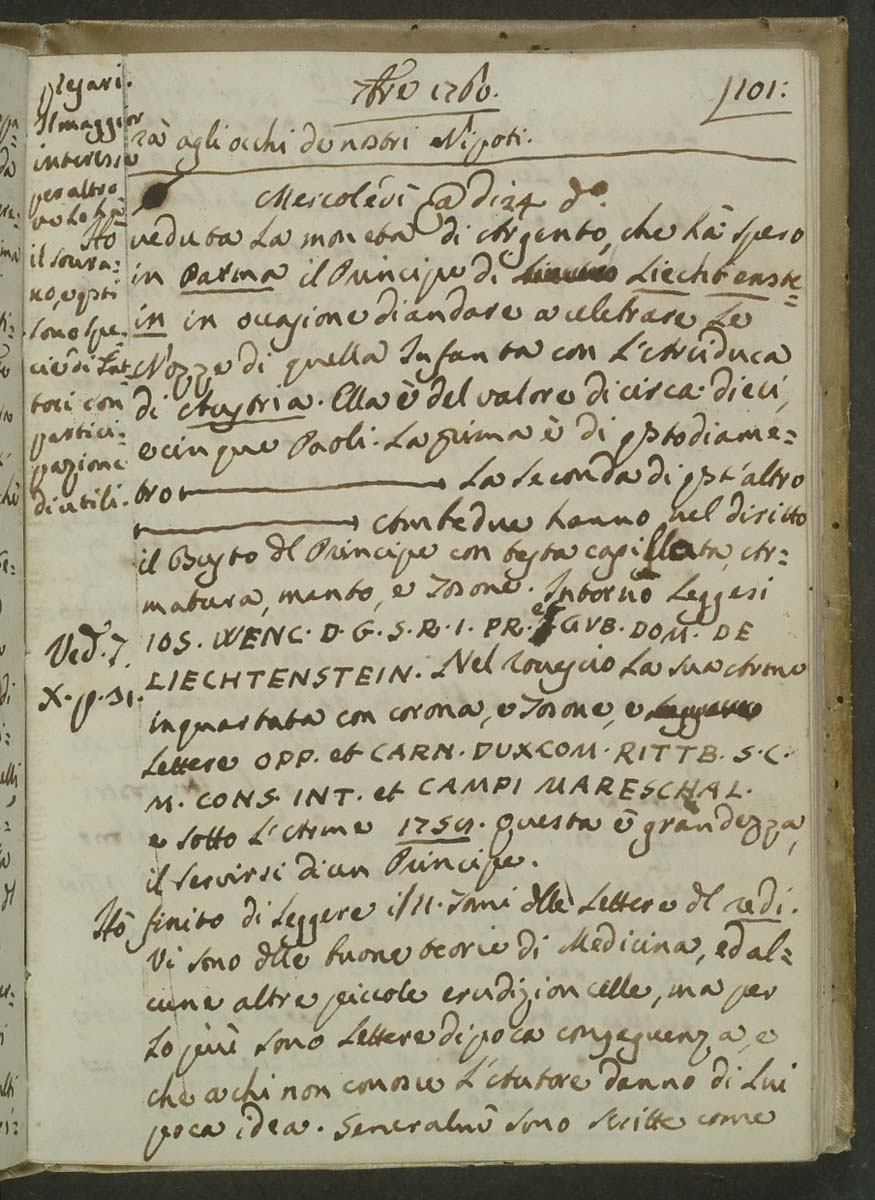 7bre 1760.
101:
plejari.
Il maggior
interesse
per altro
ve lo hà
il sovra=
no, e qsti
sono spe=
cie di Fat=
tori con
partici=
pazione
di utili.
rà agli occhi de nostri Nipoti.
Mercoledì a dì 24 do.
Hò veduta La moneta di Argento, che hà speso
in Parma il Principe di Liechtenste=
in in ocasione di andare a celebrare Le
Nozze di quella Infanta con L'Arciduca
di Austria. Ella è del valore di circa dieci,
e cinque Paoli. La prima è di qsto diame=
tro La Seconda di qst'altro
Ambedue hanno nel diritto
il Busto dl Principe con testa capillata, Ar=
matura, manto, e Tosone. Intorno Leggesi
IOS. WENC. D. G. S. R. I. PR. et GVB. DOM. DE
LIECHTENSTEIN. Nel rovescio La sua Arme
inquartata con corona, e Tosone, e
Lettere OPP. et CARN. DUX COM. RITTB. S. C.
M. CONS. INT. et CAMPI MARESCHAL.
e sotto L'Arme 1759. Questa è grandezza,
il servirsi di un Principe.
Ved. T.
X. p. 31.
Hò finito di Leggere i/II. Tomi dlle Lettere dl redi.
Vi sono dlle buone teorie di Medicina, ed al=
cune altre piccole erudizioncelle, ma per
Lo più sono Lettere di poca conseguenza, e
che a chi non conosce L'Autore danno di Lui
poca idea. Generalmē sono scritte come